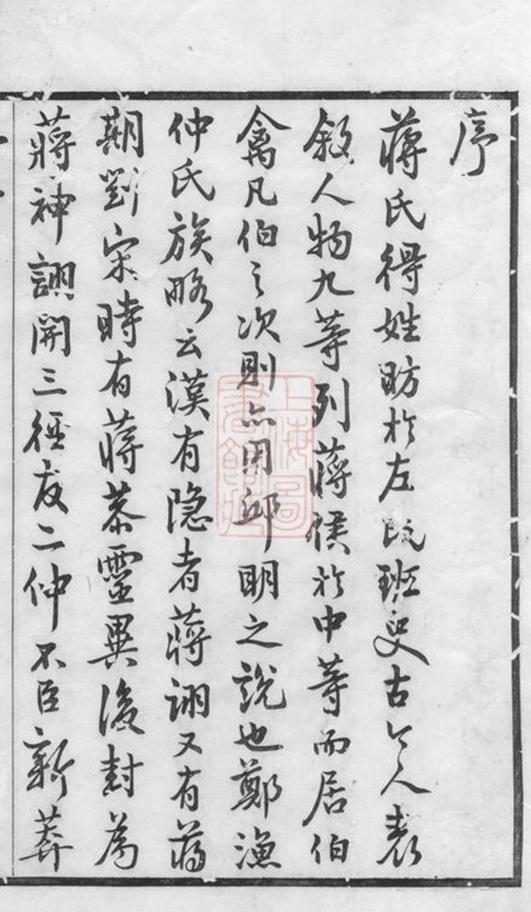 序
蔣氏得姓昉於左氏班史古今人表
敘人物九等列蔣侯於中等而居伯
禽凡伯之次則亦用邱明之說也鄭漁
仲氏族略云漢有隱者蔣詡又有蔣
期劉宋時有蔣恭靈異後封為
蔣神詡開三徑友二仲不臣新莽
上海圖書館藏